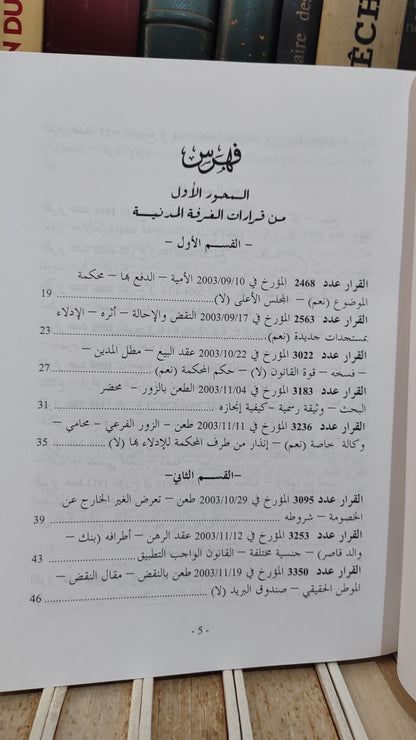 N DU
aire des
ÊCH
فهرس
المحور الأول
من قرارات الغرفة المدنية
– القسم الأول –
القرار عدد 2468 المؤرخ في 2003/09/10 الأمية – الدفع بها – محكمة
الموضوع (نعم) – المجلس الأعلى (لا) ........ 19
القرار عدد 2563 المؤرخ في 2003/09/17 النقض والإحالة – أثره – الإدلاء
بمستجدات جديدة (نعم). ........ 23
القرار عدد 3022 المؤرخ في 2003/10/22 عقد البيع – مطل المدين –
– فسخه – قوة القانون (لا) – حكم المحكمة (نعم) ........ 27
القرار عدد 3183 المؤرخ في 2003/11/04 الطعن بالزور – محضر
البحث – وثيقة رسمية –كيفية إنجازه ........ 31
القرار عدد 3236 المؤرخ في 2003/11/11 طعن – الزور الفرعي – محامي –
وكالة خاصة (نعم) – إنذار من طرف المحكمة للإدلاء بها (لا) ........ 35
–القسم الثاني–
القرار عدد 3095 المؤرخ في 2003/10/29 طعن – تعرض الغير الخارج عن
الخصومة – شروطه ........ 39
القرار عدد 3253 المؤرخ في 2003/11/12 عقد الرهن – أطرافه (بنك –
والد قاصر) – جنسية مختلفة – القانون الواجب التطبيق ........ 43
القرار عدد 3350 المؤرخ في 2003/11/19 طعن بالنقض – مقال النقض –
الموطن الحقيقي – صندوق البريد (لا) ........ 46
- 5 -